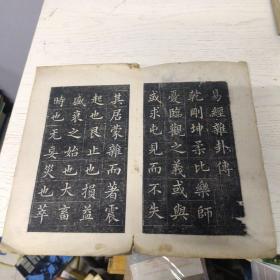 易經雜卦傳
乾剛坤柔比樂師
憂臨觀之義或與
或求屯見而不失
其居蒙雜而著震
起也艮止也損益
盛衰之始也大畜
時也无妄災也萃